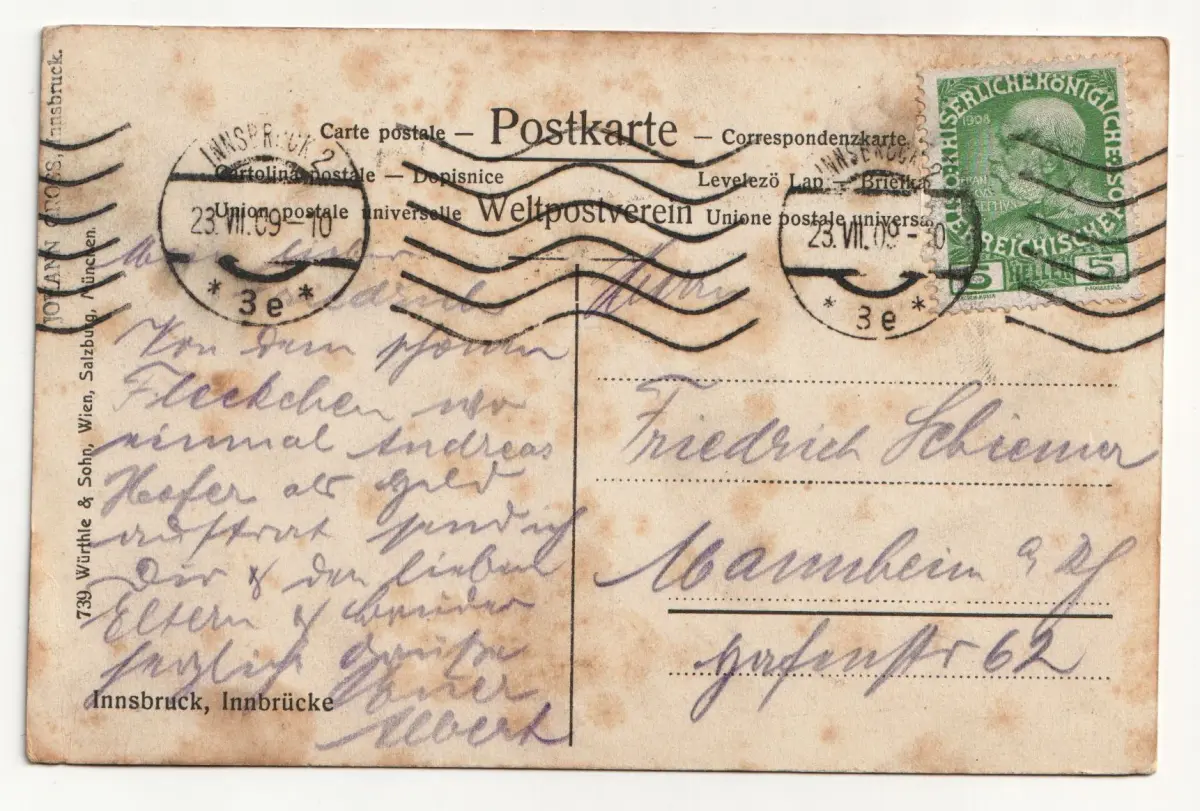 Carte postale — Postkarte — Correspondenzkarte
Cartolina postale — Dopisnice Levelezö Lap — Briefka
Union postale universelle Weltpostverein Unione postale universa
INNSBRUCK 2
23.VII.09-10
* 3e *
INNSBRUCK
23.VII.09-10
* 3e *
KAISERLICHEKÖNIGLICHE
ÖSTERREICHISCHE POST
1908
5 HELLER 5
JOHANN GROSS, Innsbruck.
739 Würthle & Sohn, Wien, Salzburg, München.
Mein lieber
Friedrich
Von dem schönen
Fleckchen wo
einmal Andreas
Hofer als Held
auftrat send ich
Dir & den lieben
Eltern & Bruder
herzlich Grüße
Albert
Innsbruck, Innbrücke
Herrn
Friedrich Schiemer
Mannheim a Rh
Hafenstr 62